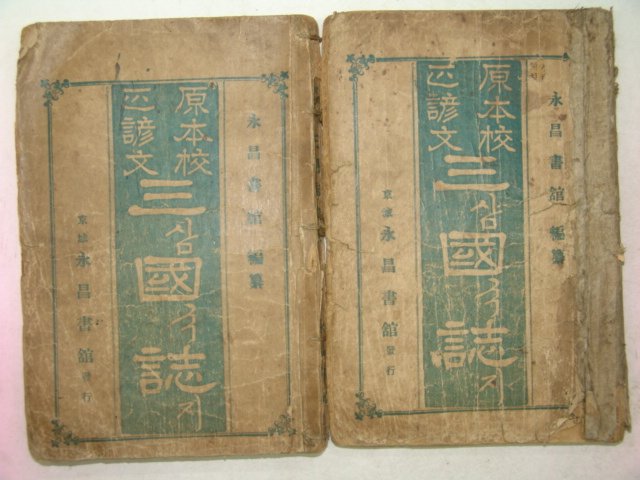 永昌書館 編纂
原本校
正諺文
三삼國국誌지
京城 永昌書館 發行
永昌書館 編纂
原本校
正諺文
三삼國국誌지
京城 永昌書館 發行